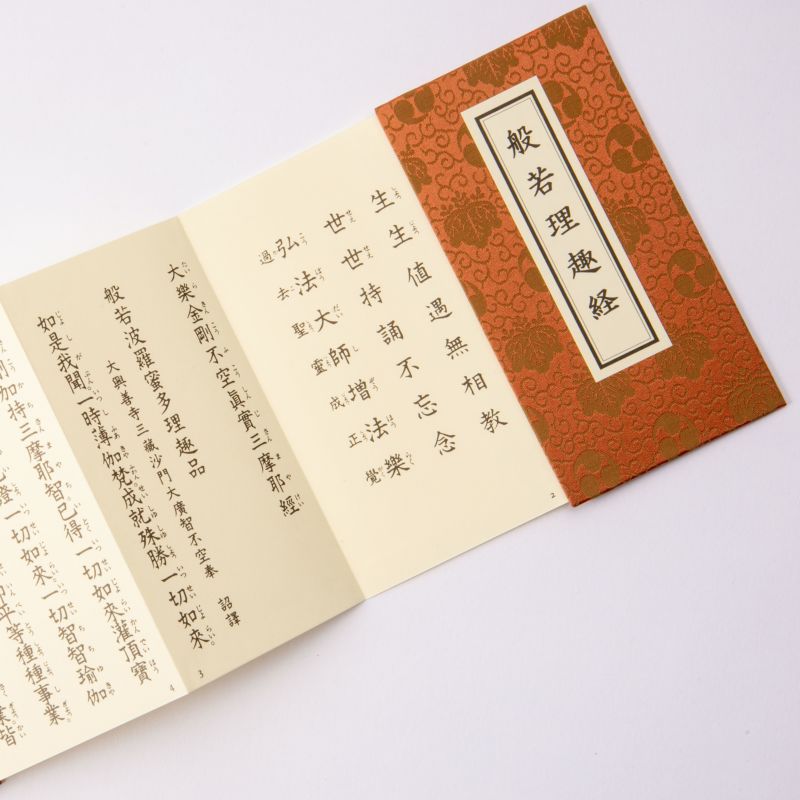 般若理趣経
生生値遇無相教
世世持誦不忘念
弘法大師増法樂
過去聖靈成正覺
2
大樂金剛不空眞實三摩耶經
般若波羅蜜多理趣品
大興善寺三藏沙門大廣智不空奉 詔譯
如是我聞一時薄伽梵成就殊勝一切如來
3
剛加持三摩耶智已得一切如來灌頂寶
證一切如來一切智智瑜伽
平等種種事業
業皆
4